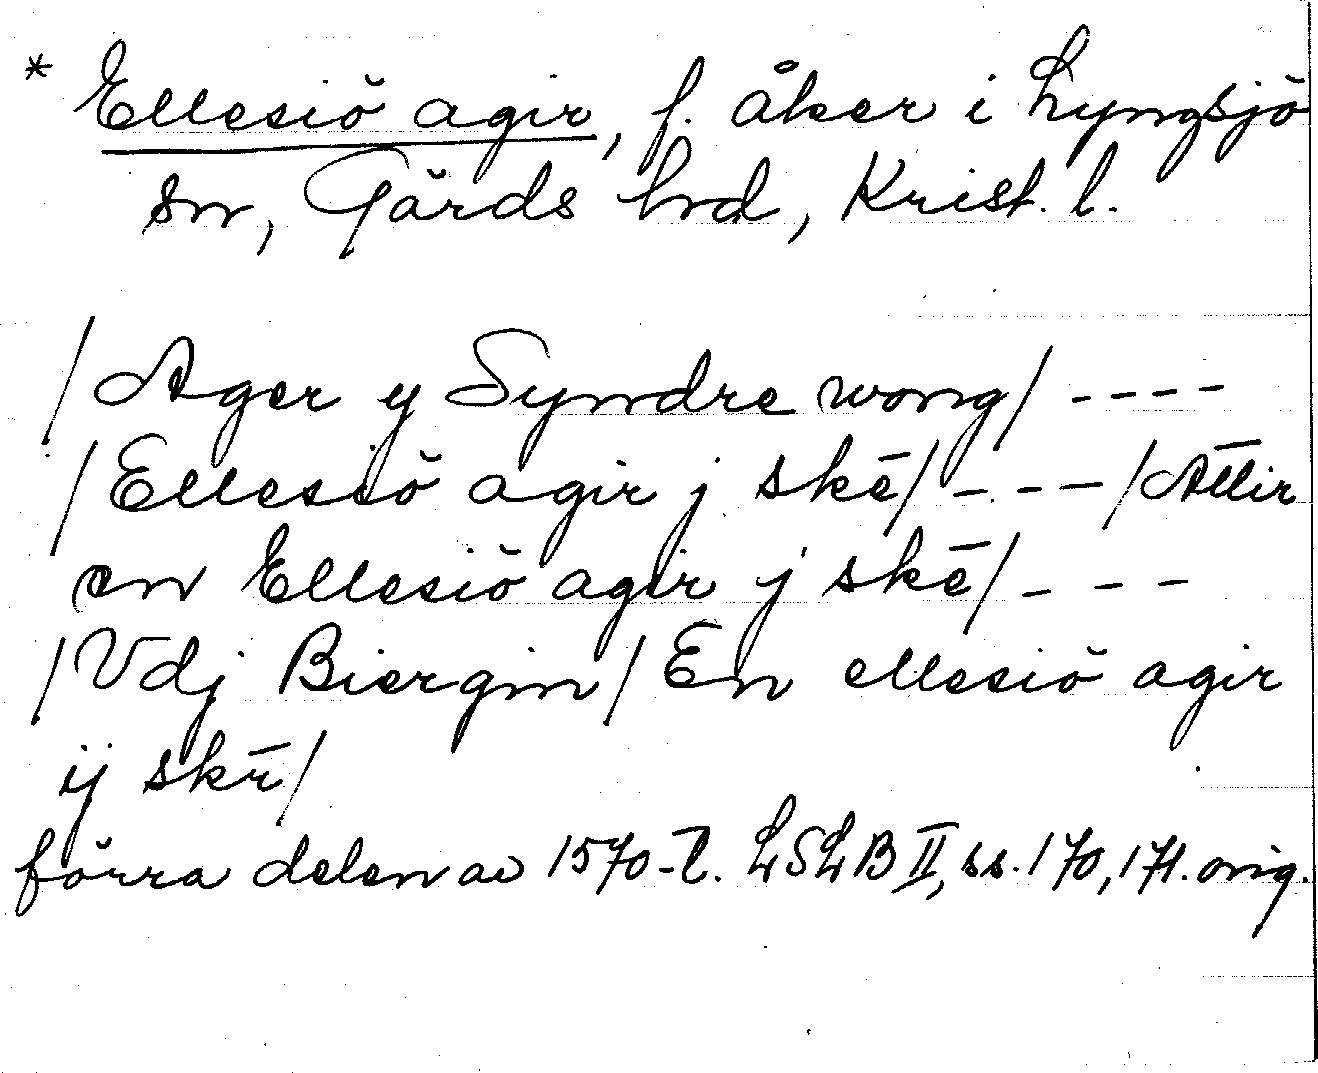 * Ellesiö agir, f. åker i Lyngsjö
sn, Gärds hrd, Krist. l.
/Ager y Syndre wong/ ----
/Ellesiö agir j skē/ --- /Āttir
en Ellesiö agir j skē/ ---
/Vdj Biergin/ En ellesiö agir
ij skr̄/
förra delen av 1570-t. LSLB II, ss. 170, 171. orig.